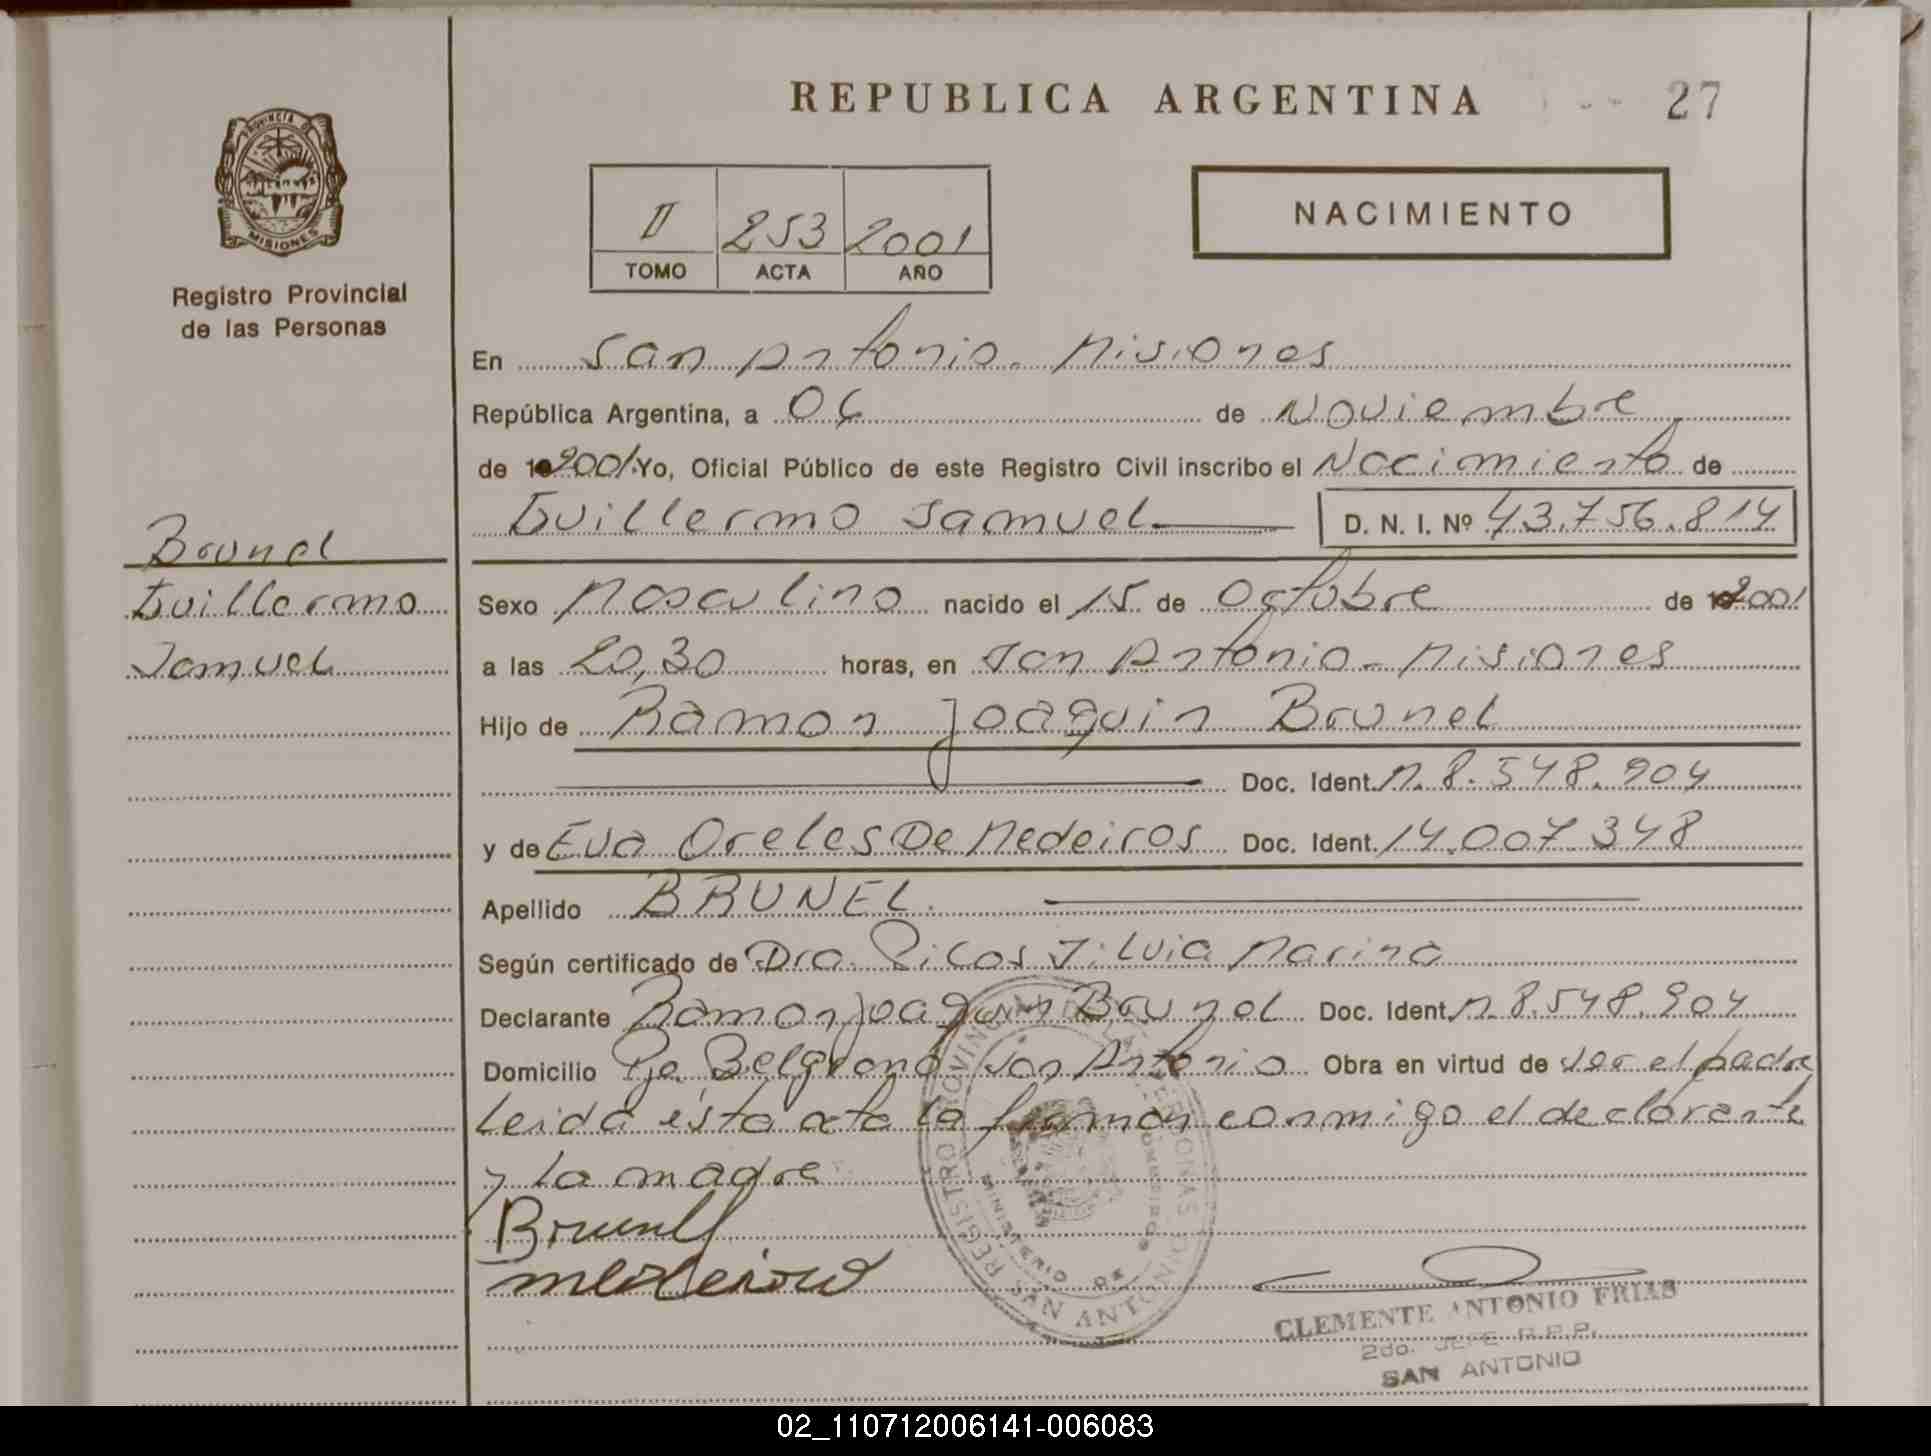 REPUBLICA ARGENTINA
27
PROVINCIA DE
MISIONES
Registro Provincial
de las Personas
II 253 2001
TOMO ACTA AÑO
NACIMIENTO
En San Antonio - Misiones
República Argentina, a 06 de Noviembre
de 2001. Yo, Oficial Público de este Registro Civil inscribo el Nacimiento de
Guillermo Samuel D. N. I. Nº 43.756.814
Brunel
Guillermo
Samuel
Sexo Masculino nacido el 15 de Octubre de 2001
a las 20,30 horas, en San Antonio - Misiones
Hijo de Ramon Joaquin Brunel
Doc. Ident. M. 8.548.904
y de Eva Oreles De Medeiros Doc. Ident. 14.007.348
Apellido BRUNEL.
Según certificado de Dra. Silvia Marina
Declarante Ramon Joaquin Brunel Doc. Ident. M. 8.548.904
Domicilio Pje. Belgrano - San Antonio Obra en virtud de ser el padre
Leida ésta acta la firman conmigo el declarante
y la madre
Brunel
REGISTRO PROVINCIAL DE LAS PERSONAS
MINISTERIO DE
SAN ANTONIO
CLEMENTE ANTONIO FRIAS
2do. JEFE R.P.P.
SAN ANTONIO
02_110712006141-006083